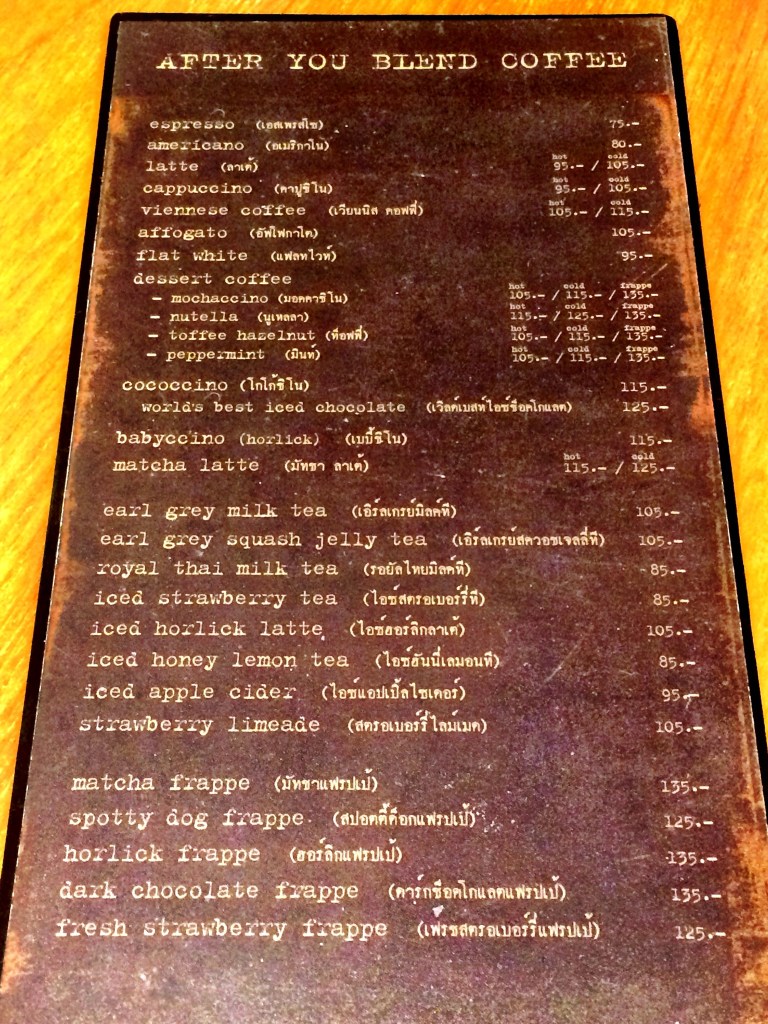 AFTER YOU BLEND COFFEE
espresso (เอสเพรสโซ) 75.-
americano (อเมริกาโน) 80.-
hot cold
latte (ลาเต้) 95.- / 105.-
hot cold
cappuccino (คาปูชิโน) 95.- / 105.-
hot cold
viennese coffee (เวียนนิส คอฟฟี่) 105.- / 115.-
affogato (อัฟโฟกาโต) 105.-
flat white (แฟลทไวท์) 95.-
dessert coffee
hot cold frappe
- mochaccino (มอคคาชิโน) 105.- / 115.- / 135.-
hot cold frappe
- nutella (นูเทลลา) 115.- / 125.- / 135.-
hot cold frappe
- toffee hazelnut (ท็อฟฟี่) 105.- / 115.- / 135.-
hot cold frappe
- peppermint (มินท์) 105.- / 115.- / 135.-
cococcino (โกโก้ชิโน) 115.-
world's best iced chocolate (เวิลด์เบสท์ไอซ์ช็อคโกแลต) 125.-
babyccino (horlick) (เบบี้ชิโน) 115.-
hot cold
matcha latte (มัทชา ลาเต้) 115.- / 125.-
earl grey milk tea (เอิร์ลเกรย์มิลค์ที) 105.-
earl grey squash jelly tea (เอิร์ลเกรย์สควอชเจลลี่ที) 105.-
royal thai milk tea (รอยัลไทยมิลค์ที) 85.-
iced strawberry tea (ไอซ์สตรอเบอร์รี่ที) 85.-
iced horlick latte (ไอซ์ฮอร์ลิกลาเต้) 105.-
iced honey lemon tea (ไอซ์ฮันนี่เลมอนที) 85.-
iced apple cider (ไอซ์แอปเปิ้ลไซเดอร์) 95.-
strawberry limeade (สตรอเบอร์รี่ไลม์เมด) 105.-
matcha frappe (มัทชาแฟรปเป้) 135.-
spotty dog frappe (สปอตตี้ด็อกแฟรปเป้) 125.-
horlick frappe (ฮอร์ลิกแฟรปเป้) 135.-
dark chocolate frappe (ดาร์กช็อคโกแลตแฟรปเป้) 135.-
fresh strawberry frappe (เฟรชสตรอเบอร์รี่แฟรปเป้) 125.-